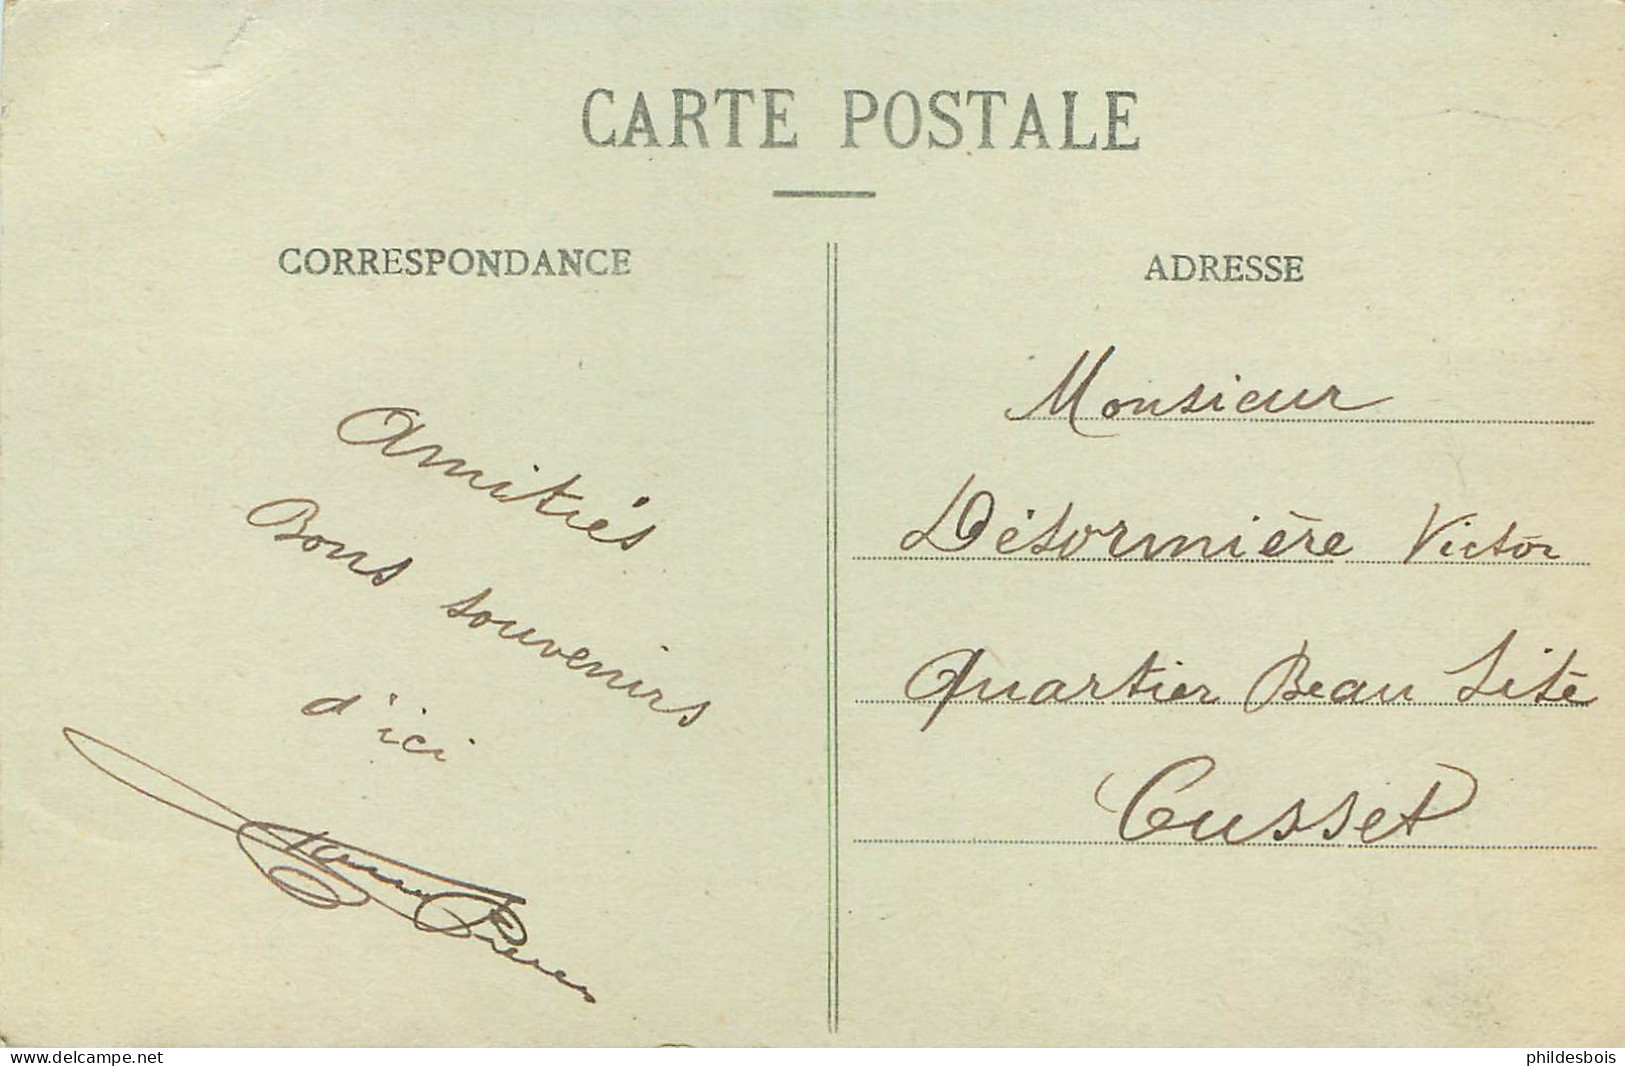 CARTE POSTALE
CORRESPONDANCE
Amitiés
Bons souvenirs
d'ici
ADRESSE
Monsieur
Désormière Victor
Quartier Beau Sité
Cusset
www.delcampe.net
phildesbois